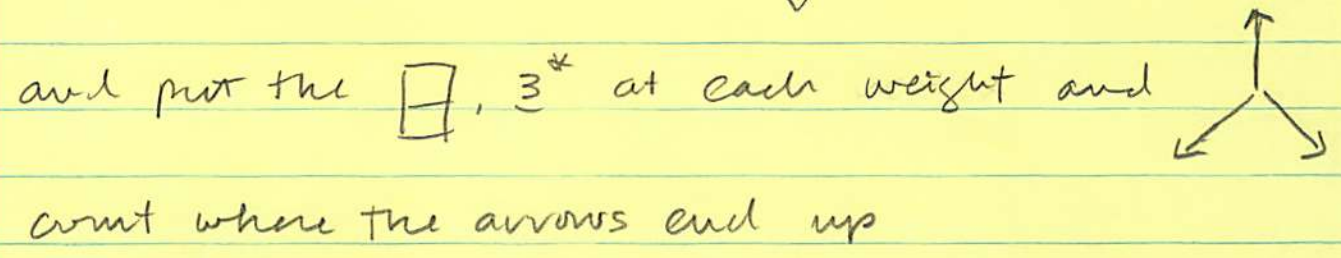 and put the , 3* at each weight and
count where the arrows end up